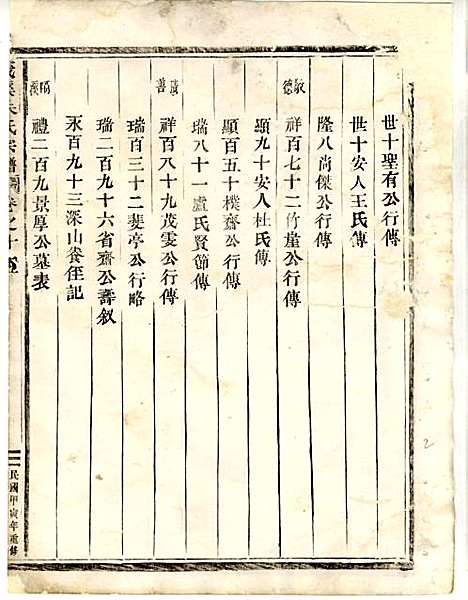 世十聖有公行傳
世十安人王氏傳
隆八尚傑公行傳
敏德
祥百七十二竹崖公行傳
顯九十安人杜氏傳
顯百五十樸齋公行傳
瑞八十一盧氏賢節傳
廣善
祥百八十九茂雯公行傳
瑞百三十二斐亭公行略
瑞二百九十六省齋公壽叙
永百九十三深山養侄記
禮二百九景厚公墓表
氏宗譜
卷之十
民國甲寅年重修
2